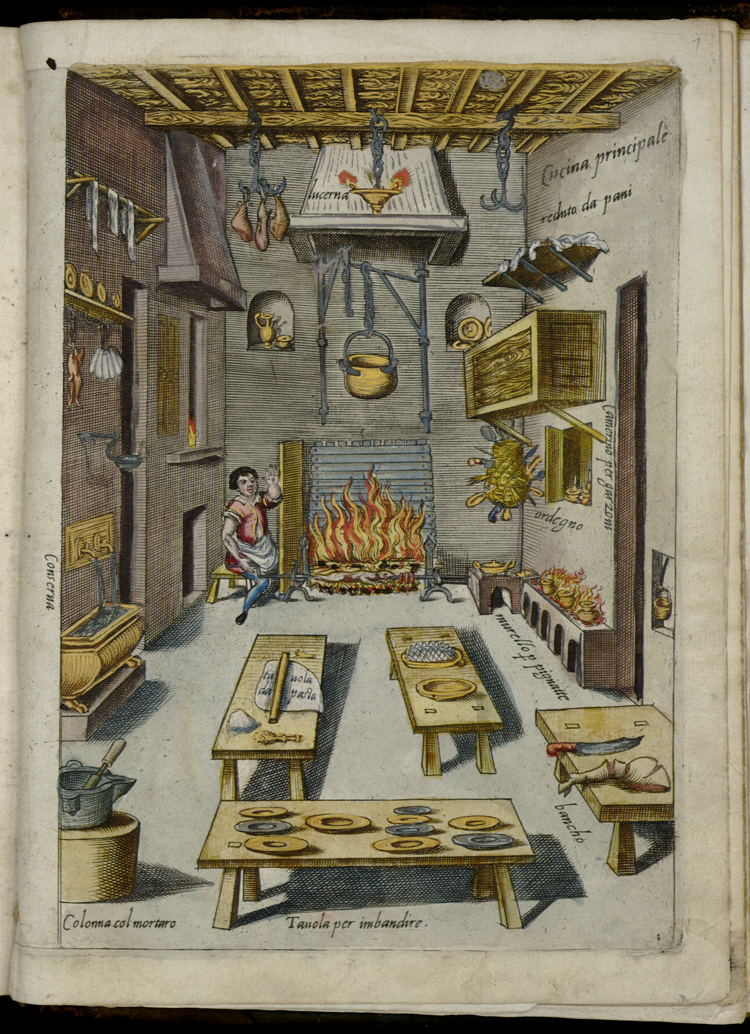 Cucina principale
lucerna
reduto da pani
Camerino per garzoni
ordegno
Conserua
murello p pignatte
tauola
da pasta
bancho
Colonna col mortaro
Tauola per imbandire.